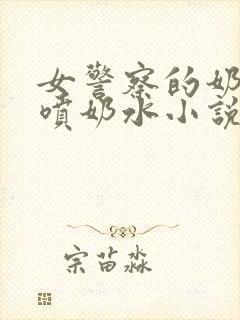 女警察的奶
喷奶水小說
宗苗淼